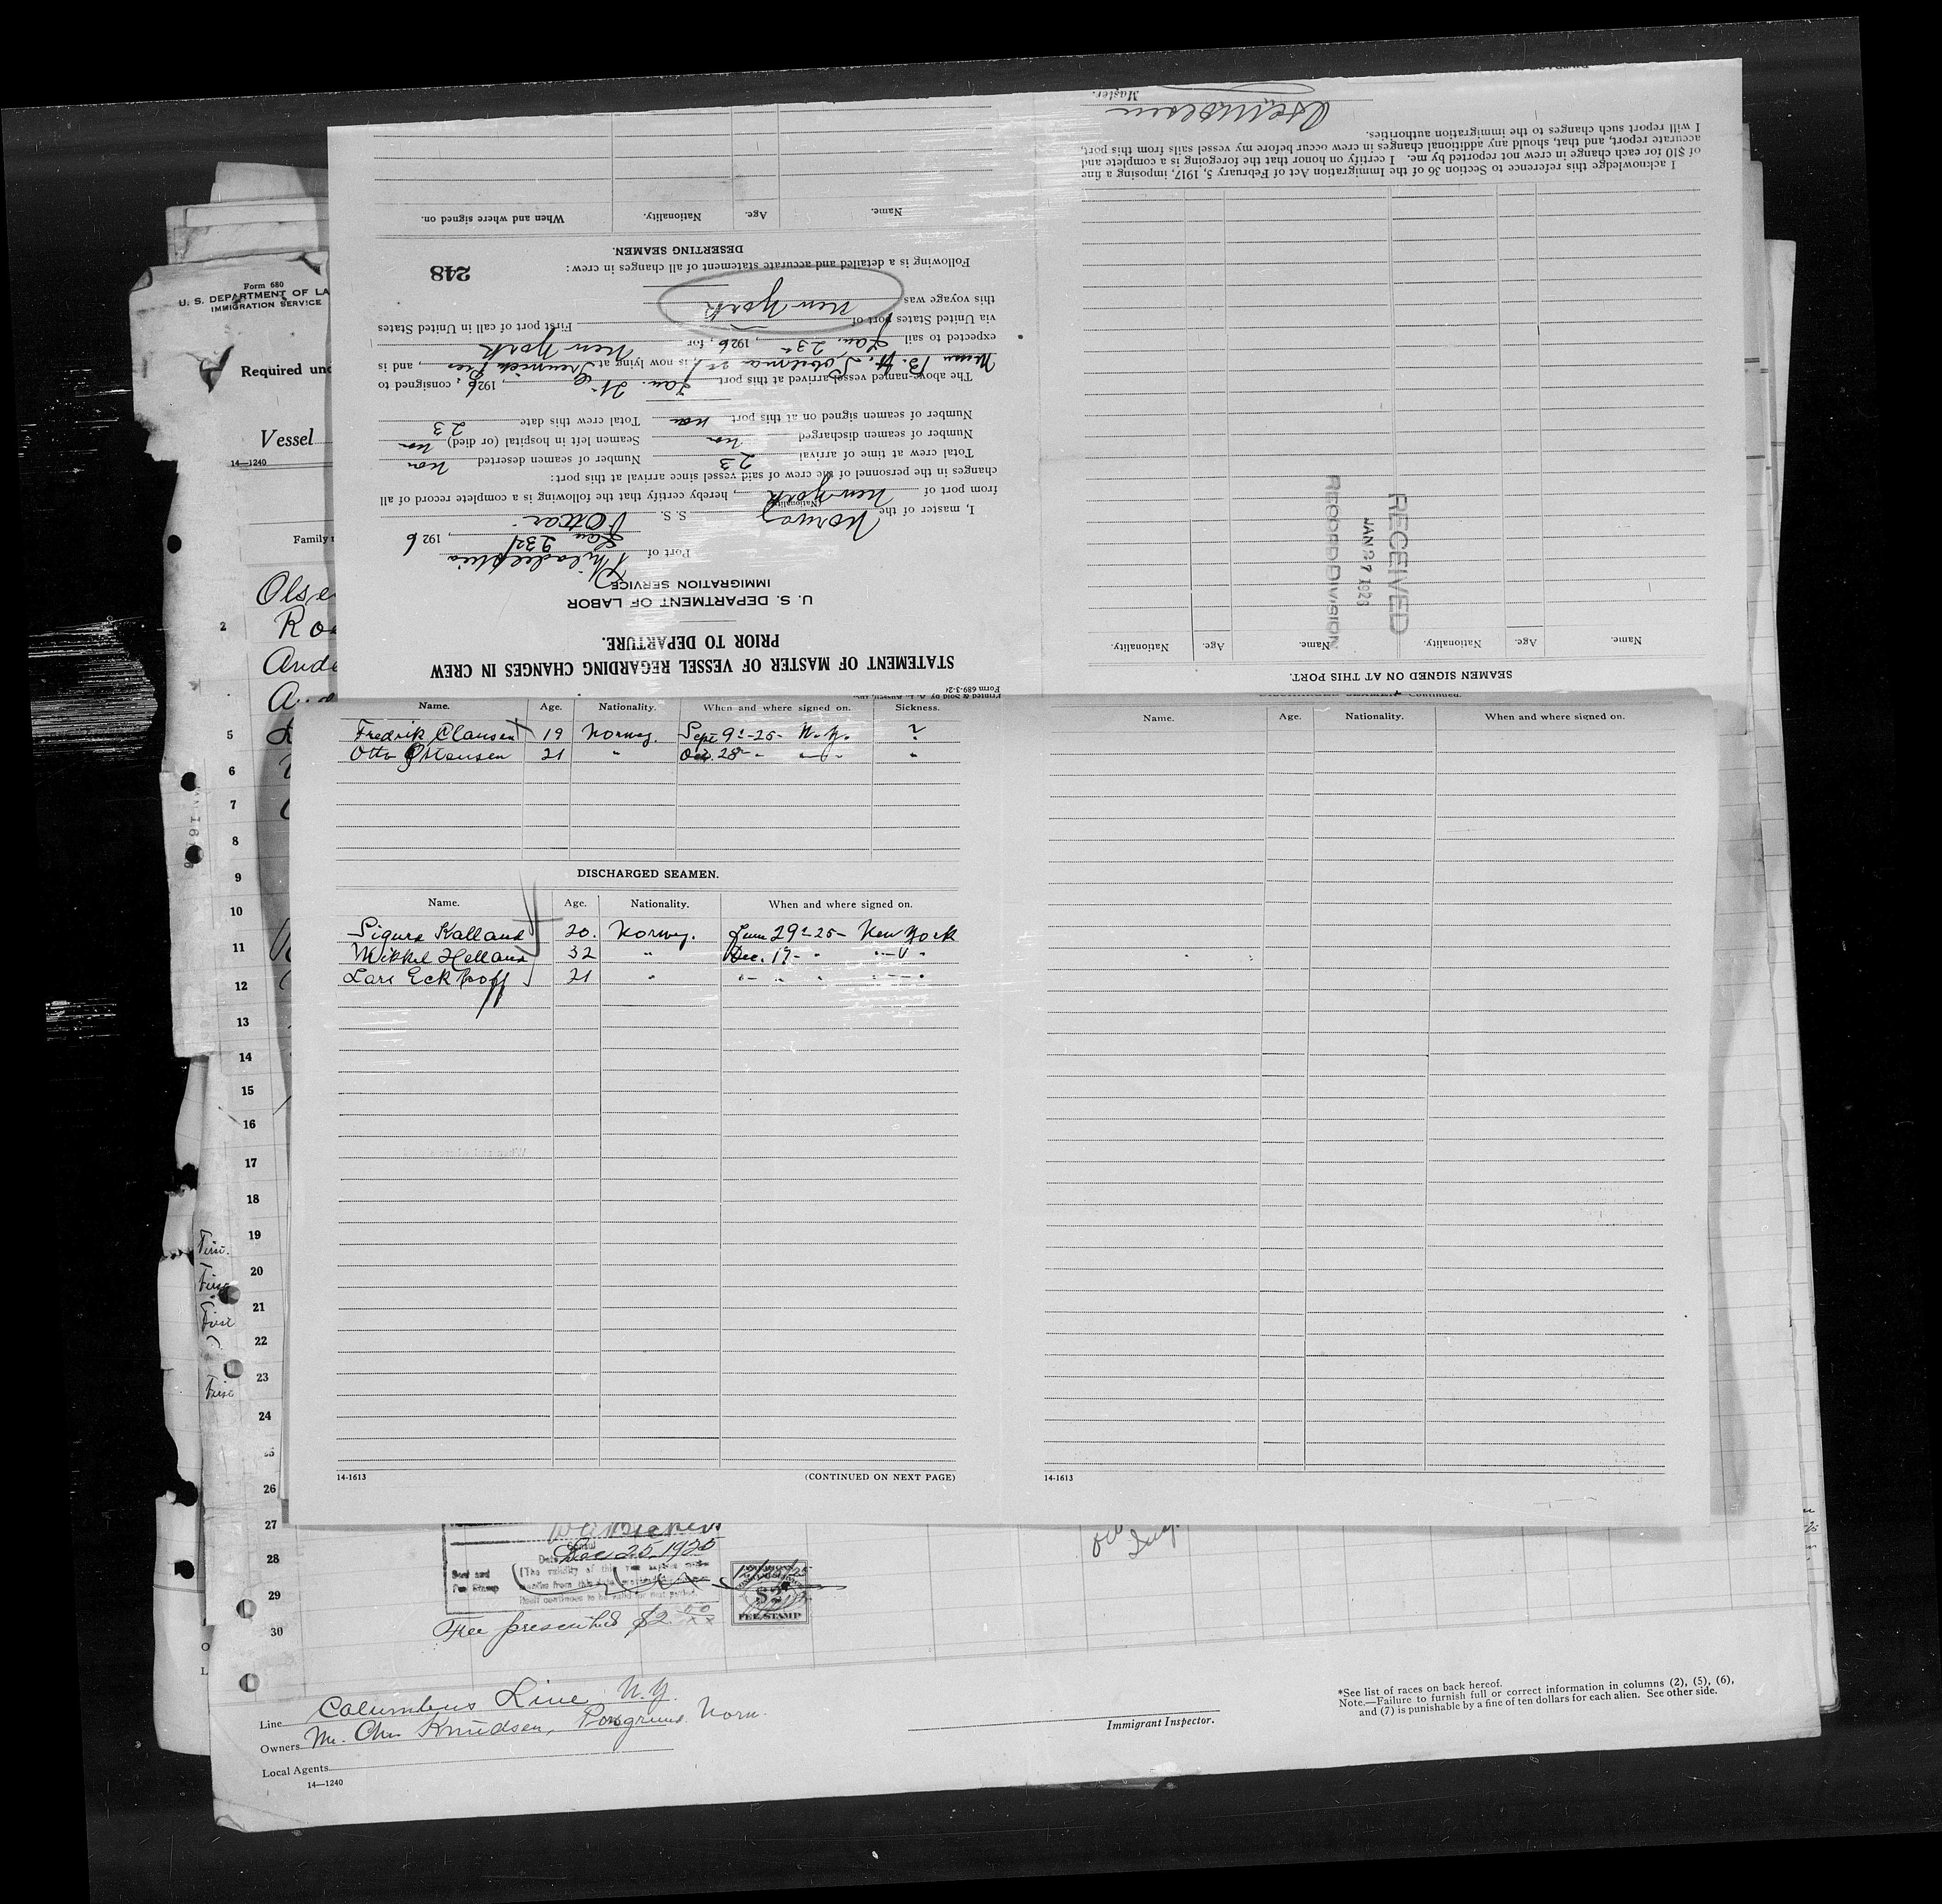 Form 680
U. S. DEPARTMENT OF LA
IMMIGRATION SERVICE
Required und
Vessel
14—1240
Family n
Olse
2 Roo
Ande
5
6
7
8
9
10
11
12
13
14
15
16
17
18
19
20
21
22
23
24
25
26
27
28
29
30
Form 689-3-24
STATEMENT OF MASTER OF VESSEL REGARDING CHANGES IN CREW
PRIOR TO DEPARTURE.
U. S. DEPARTMENT OF LABOR
IMMIGRATION SERVICE
Port of Philadelphia
Jan 23d, 1926
I, master of the Norway S. S. Ottar
(Nationality)
from port of New York, hereby certify that the following is a complete record of all
changes in the personnel of the crew of said vessel since arrival at this port:
Total crew at time of arrival 23 Number of seamen deserted non
Number of seamen discharged non Seamen left in hospital (or died) non
Number of seamen signed on at this port non Total crew this date 23
The above-named vessel arrived at this port Jan. 21, 1926, consigned to
B. H. is now lying at Pier, and is
expected to sail Jan. 23d, 1926, for New York
via United States port of First port of call in United States
this voyage was New York
Following is a detailed and accurate statement of all changes in crew:
248
DESERTING SEAMEN.
Name. Age. Nationality. When and where signed on.
SEAMEN SIGNED ON AT THIS PORT.
Name. Age. Nationality. Name. Age. Nationality.
RECEIVED
JAN 27 1926
RECORD DIVISION
I acknowledge this reference to Section 36 of the Immigration Act of February 5, 1917, imposing a fine
of $10 for each change in crew not reported by me. I certify on honor that the foregoing is a complete and
accurate report, and that, should any additional changes in crew occur before my vessel sails from this port,
I will report such changes to the immigration authorities.
Master.
Name. Age. Nationality. When and where signed on. Sickness.
Fredrik Clausen 19 Norway. Sept 9d-25- N.Y. ?
Otto Ottensen 21 " Oct. 28- " " "
DISCHARGED SEAMEN.
Name. Age. Nationality. When and where signed on.
Sigurd Kalland 20. Norway. June 29d-25- New York
Mikkel Helland 32 " Dec. 17- " "
Lars Eckhoff 21 " " " "
14-1613 (CONTINUED ON NEXT PAGE)
DISCHARGED SEAMEN—Continued.
Name. Age. Nationality. When and where signed on.
14-1613
Consul
Date Dec 25, 1925
Seal and
Fee Stamp
(The validity of this
$2
FEE STAMP
Fee prescribed $2
Line Columbus Line, N.Y.
Owners Mr. Chr. Knudsen, Porsgrund. Norw.
Local Agents
14—1240
Immigrant Inspector.
*See list of races on back hereof.
Note.—Failure to furnish full or correct information in columns (2), (5), (6),
and (7) is punishable by a fine of ten dollars for each alien. See other side.